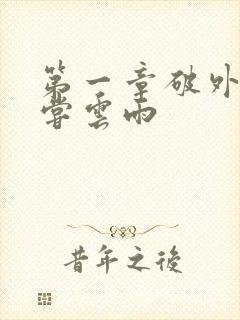 第一章破外
嘗雲雨
昔年之後